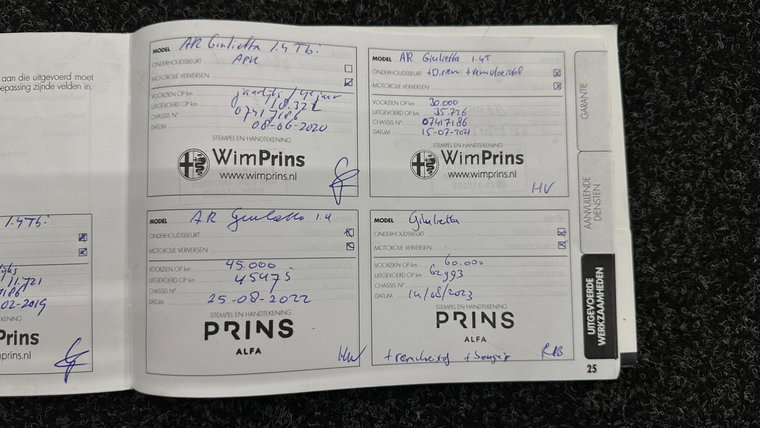 aan die uitgevoerd moet
epassing zijnde velden in.
1.4 Tbi
11.721
02-2019
KENING
Prins
mprins.nl
MODEL AR Giulietta 1.4 Tbi
ONDERHOUDSBEURT APK
MOTOROLIE VERVERSEN
VOORZIEN OP km jaarlijks / 4ejaar
UITGEVOERD OP km 18.321
CHASSIS N° 07417186
DATUM 08-06-2020
STEMPEL EN HANDTEKENING
WimPrins
www.wimprins.nl
MODEL AR Giulietta 1.4T
ONDERHOUDSBEURT +D.riem +remvloeistof
MOTOROLIE VERVERSEN
VOORZIEN OP km 30.000
UITGEVOERD OP km 35.726
CHASSIS N° 07417186
DATUM 15-07-2021
STEMPEL EN HANDTEKENING
WimPrins
www.wimprins.nl
HV
MODEL AR Giulietta 1.4
ONDERHOUDSBEURT
MOTOROLIE VERVERSEN
VOORZIEN OP km 45.000
UITGEVOERD OP km 45475
CHASSIS N°
DATUM 25-08-2022
STEMPEL EN HANDTEKENING
PRINS
ALFA
HV
MODEL Giulietta
ONDERHOUDSBEURT
MOTOROLIE VERVERSEN
VOORZIEN OP km 60.000
UITGEVOERD OP km 62993
CHASSIS N°
DATUM 14/08/2023
STEMPEL EN HANDTEKENING
PRINS
ALFA
GARANTIE
AANVULLENDE
DIENSTEN
UITGEVOERDE
WERKZAAMHEDEN
25